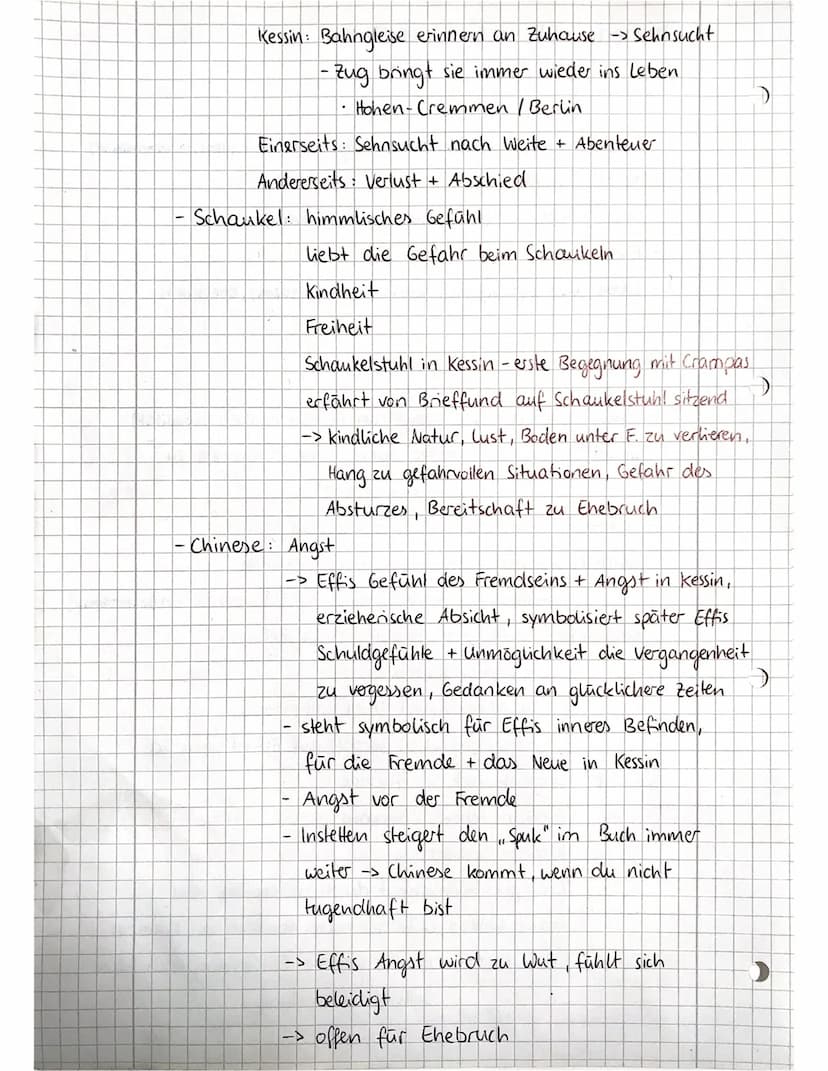 Kessin: Bahngleise erinnern an Zuhause -> Sehnsucht
- Zug bringt sie immer wieder ins Leben
· Hohen-Cremmen / Berlin
Einerseits: Sehnsucht nach Weite + Abenteuer
Andererseits: Verlust + Abschied
- Schaukel: himmlisches Gefühl
liebt die Gefahr beim Schaukeln
Kindheit
Freiheit
Schaukelstuhl in Kessin - erste Begegnung mit Crampas
erfährt von Brieffund auf Schaukelstuhl sitzend
-> kindliche Natur, Lust, Boden unter F. zu verlieren,
Hang zu gefahrvollen Situationen, Gefahr des
Absturzes, Bereitschaft zu Ehebruch
- Chinese: Angst
-> Effis Gefühl des Fremdseins + Angst in Kessin,
erzieherische Absicht, symbolisiert später Effis
Schuldgefühle + Unmöglichkeit die Vergangenheit
zu vergessen, Gedanken an glücklichere Zeiten
- steht symbolisch für Effis inneres Befinden,
für die Fremde + das Neue in Kessin
- Angst vor der Fremde
- Instetten steigert den „Spuk" im Buch immer
weiter -> Chinese kommt, wenn du nicht
tugendhaft bist
-> Effis Angst wird zu Wut, fühlt sich
beleidigt
-> offen für Ehebruch